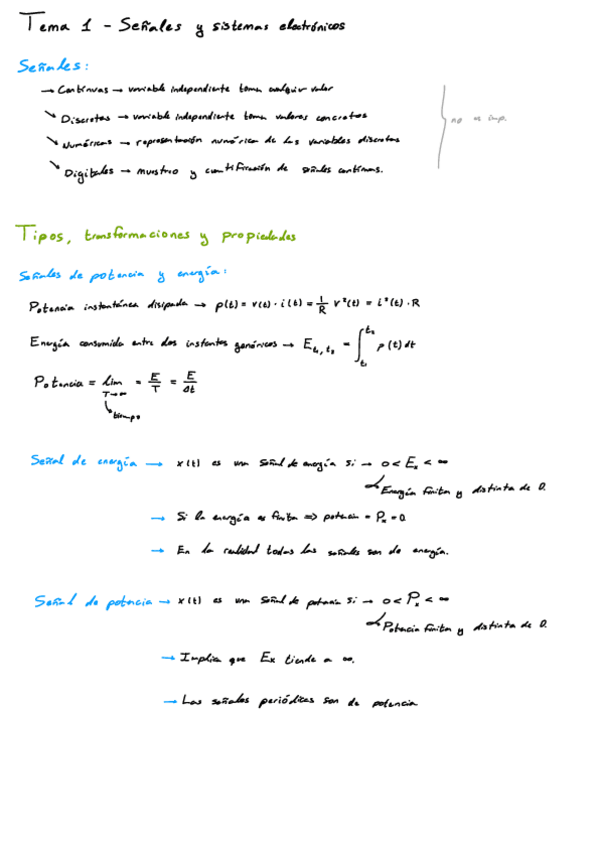 Tema 1 - Señales y sistemas electrónicos
Señales:
→ Continuas → variable independiente toma cualquier valor
→ Discretas → variable independiente toma valores concretos
→ Numéricas → representación numérica de las variables discretas
→ Digitales → muestreo y cuantificación de señales continuas.
no es imp.
Tipos, transformaciones y propiedades
Señales de potencia y energía:
Potencia instantánea disipada → p(t) = v(t) · i(t) = 1/R v²(t) = i²(t) · R
Energía consumida entre dos instantes genéricos → E_t₁,t₂ = ∫_t₁^t₂ p(t) dt
Potencia = lim_T→∞ = E/T = E/Δt
tiempo
Señal de energía → x(t) es una señal de energía si → 0 < Eₓ < ∞
Energía finita y distinta de 0.
→ Si la energía es finita => potencia = Pₓ = 0
→ En la realidad todas las señales son de energía.
Señal de potencia → x(t) es una señal de potencia si → 0 < Pₓ < ∞
Potencia finita y distinta de 0.
→ Implica que Ex tiende a ∞.
→ Las señales periódicas son de potencia